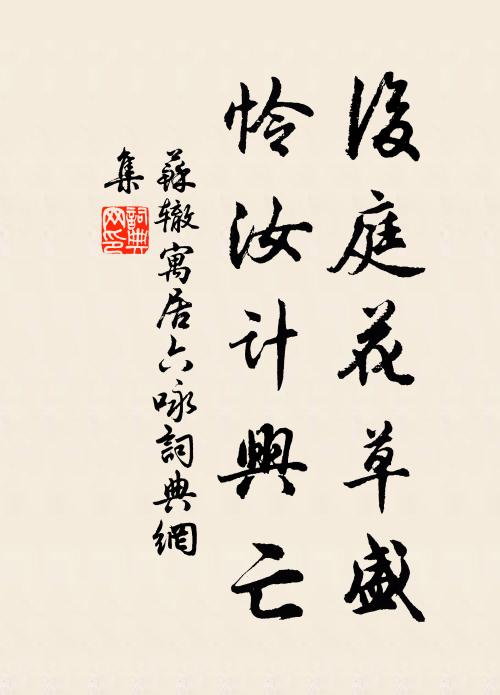 後庭花草盛
憐汝計興亡
蘇辙寓居六咏詞典網
集
詞典
网印